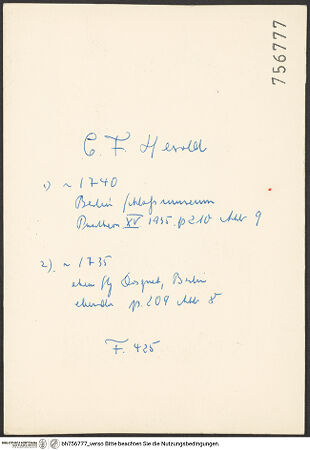 756777
C. F. Herold
1) ~ 1740
Berlin Schlossmuseum
Pantheon XV 1935 p 210 Abb 9
2). ~ 1735
ehem Slg Berlin
ebenda p. 209 Abb 8
F. 425
bh756777_verso Bitte beachten Sie die Nutzungsbedingungen.